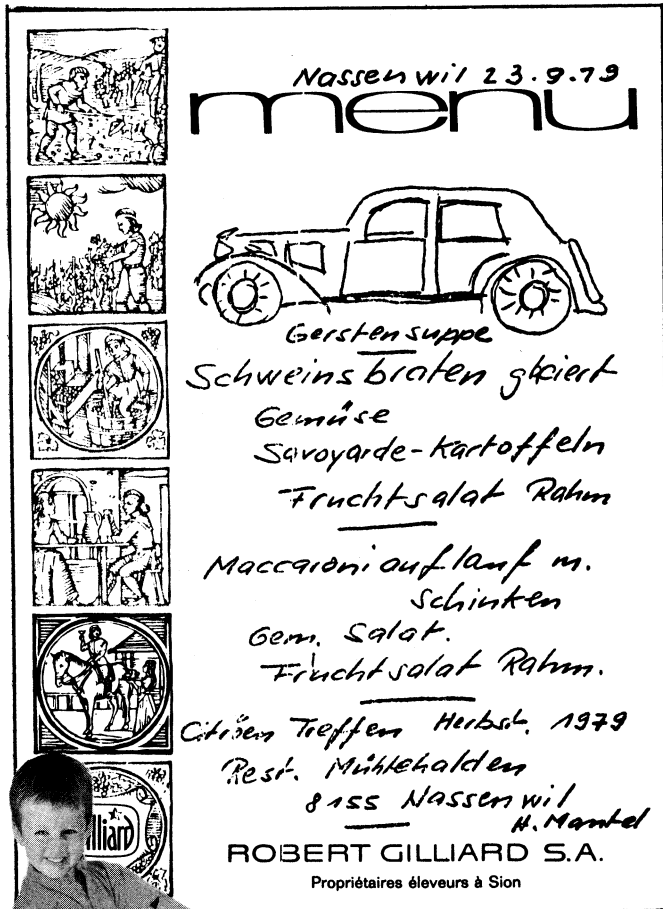 Nassenwil 23.9.79
menu
Gerstensuppe
Schweinsbraten glaciert
Gemüse
Savoyarde-Kartoffeln
Fruchtsalat Rahm
Maccaroniauflauf m.
Schinken
Gem. Salat.
Fruchtsalat Rahm.
Citröen Treffen Herbst. 1979
Rest. Mühlehalden
8155 Nassenwil
H. Mantel
lliard
ROBERT GILLIARD S.A.
Propriétaires éleveurs à Sion